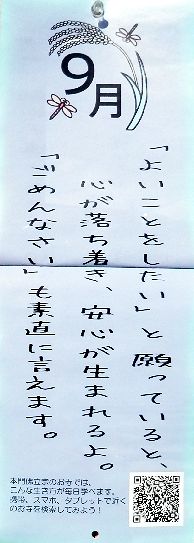 9月
「よいことをしたい」と願っていると、
心が落ち着き、安心が生まれるよ。
「ごめんなさい」も素直に言えます。
本門佛立宗のお寺では、
こんな生き方が毎日学べます。
携帯、スマホ、タブレットで近く
のお寺を検索してみよう！